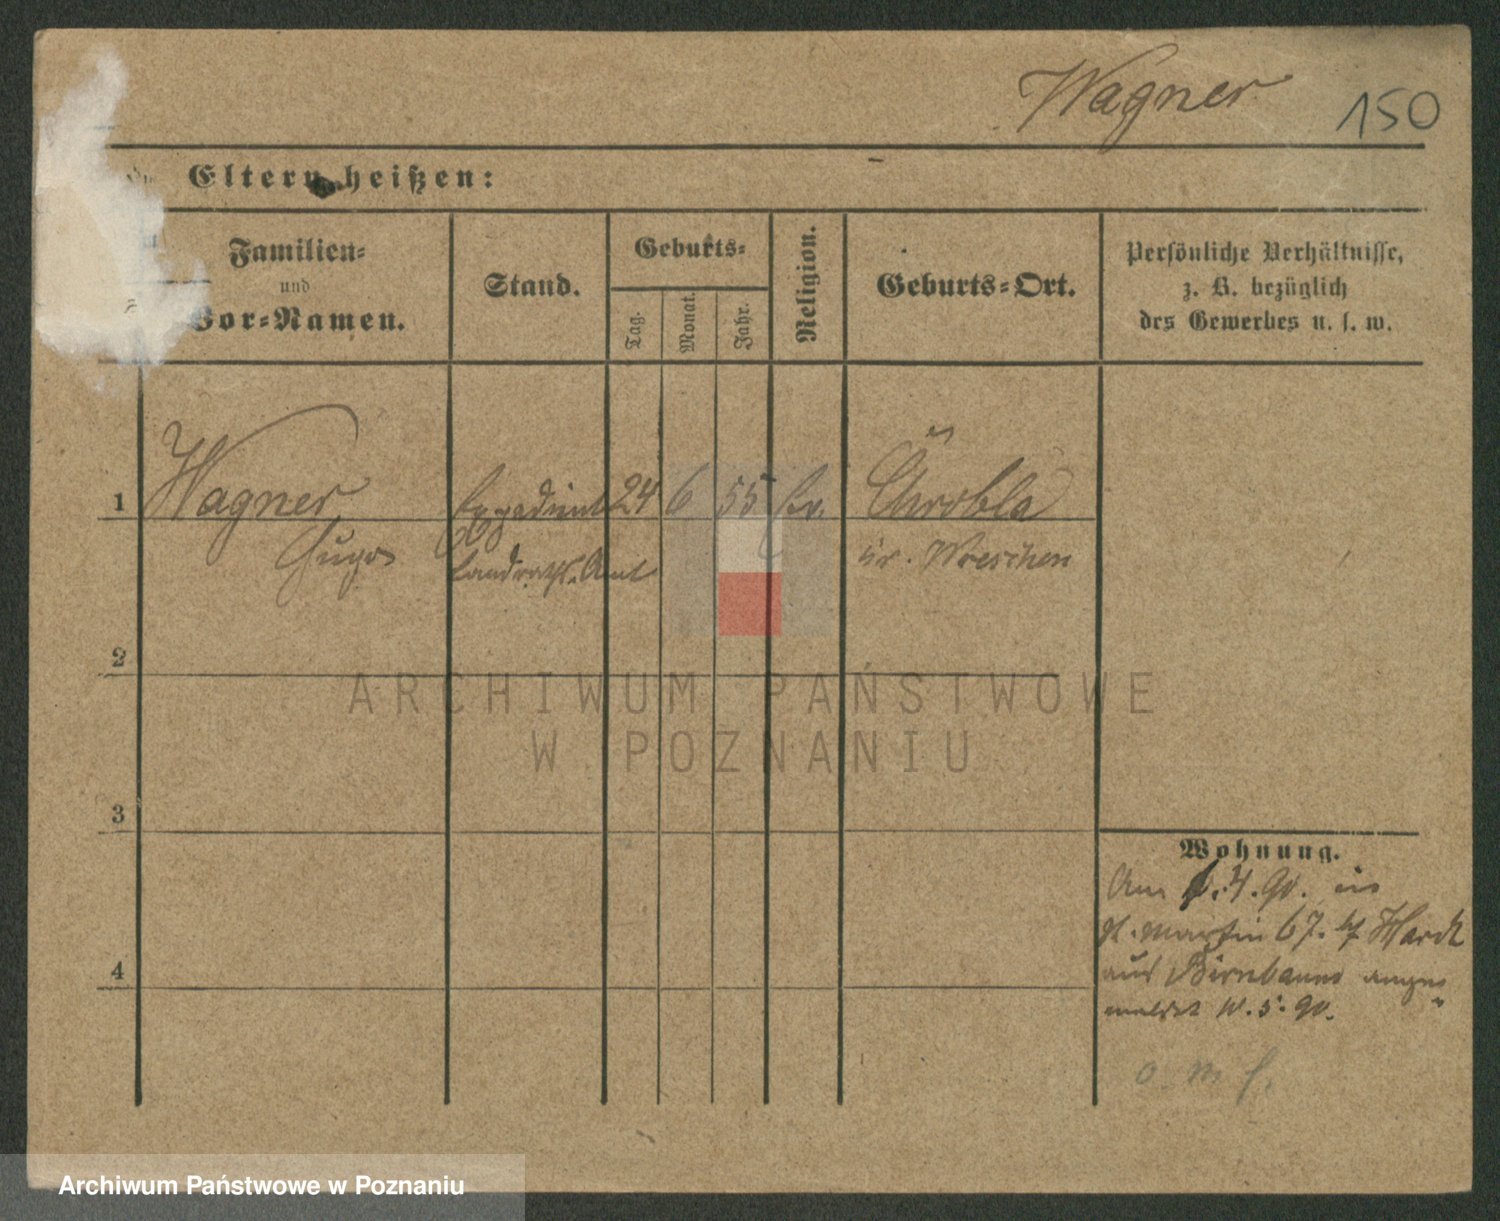 Wagner 150
Eltern heißen:
Familien-
und
Vor-Namen.
Stand.
Geburts-
Tag.
Monat.
Jahr.
Religion.
Geburts-Ort.
Persönliche Verhältnisse,
z. B. bezüglich
des Gewerbes u. s. w.
1 Wagner Expedient 24 6 55 Ev.
Hugo Landraths-Amt Kr. Wreschen
2
3
4
Wohnung.
Am 4. 90. in
St. Martin 67. Hardt
aus Birnbaum ange-
meldet 5. 90.
o. m. f.
ARCHIWUM PAŃSTWOWE
W POZNANIU
Archiwum Państwowe w Poznaniu